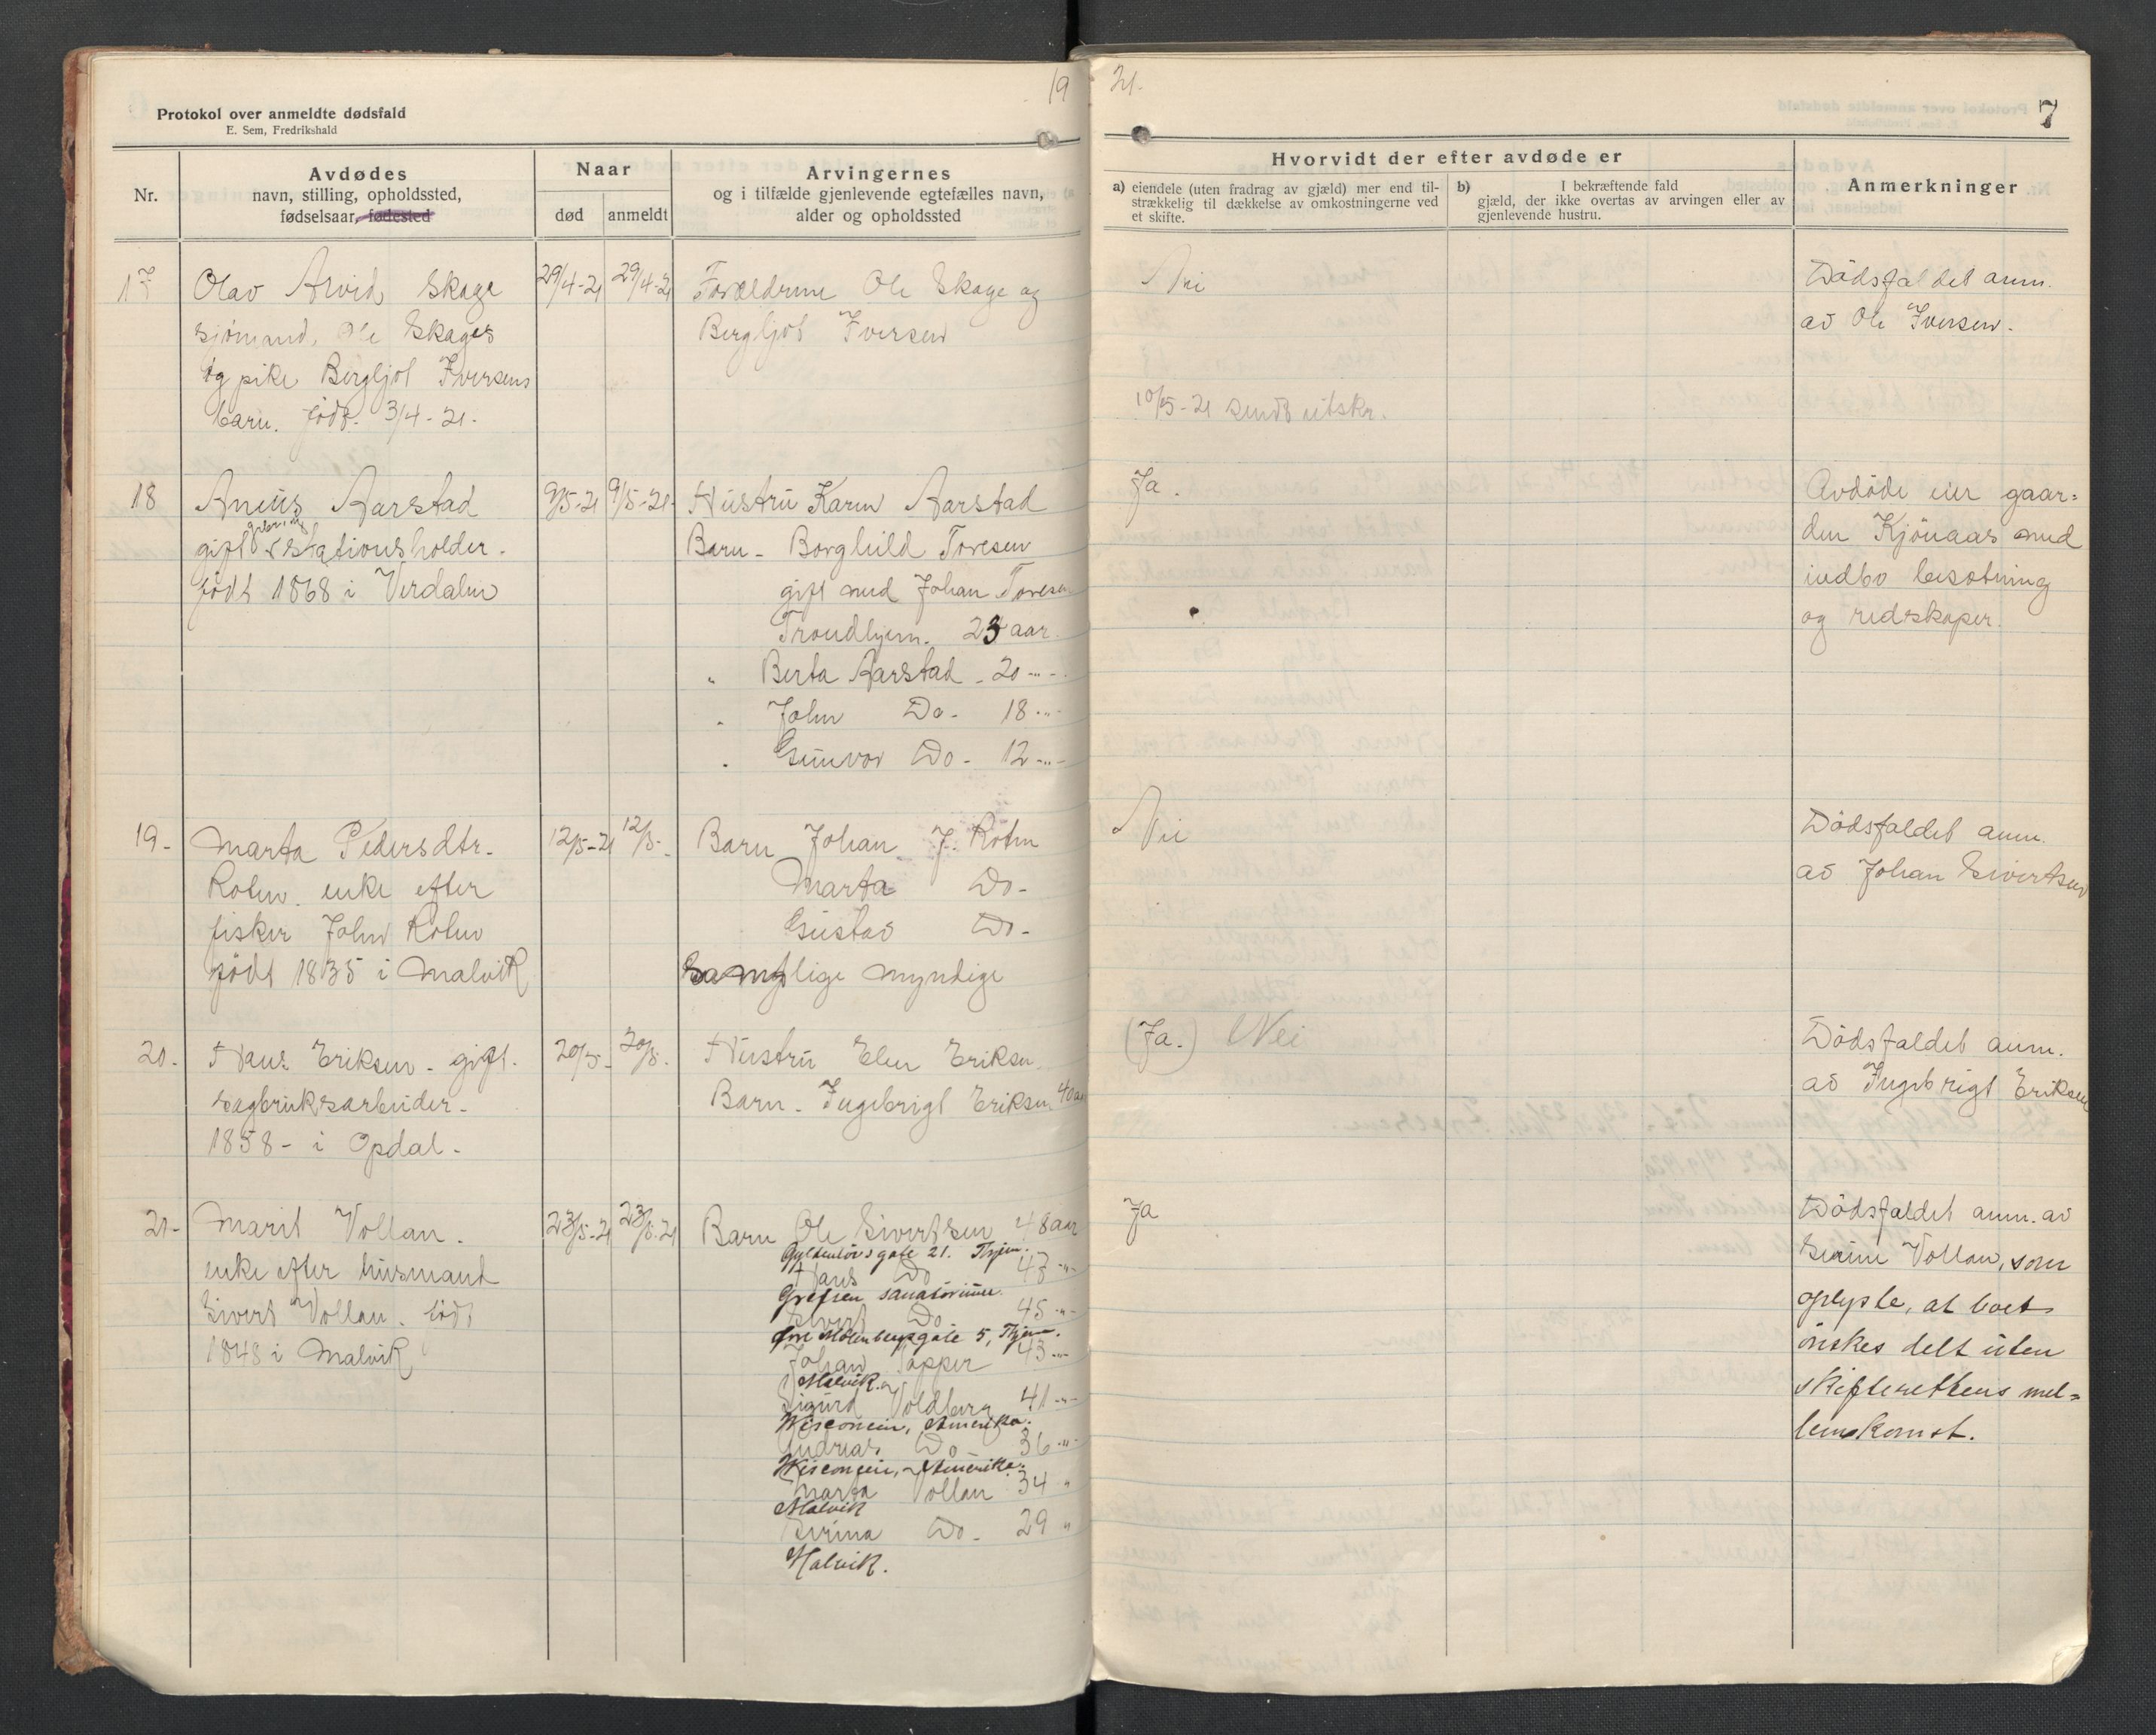 19 21.
Protokol over anmeldte dødsfald
E. Sem, Fredrikshald
7
Nr.
Avdødes
navn, stilling, opholdssted,
fødselsaar, fødested
Naar
død
anmeldt
Arvingernes
og i tilfælde gjenlevende egtefælles navn,
alder og opholdssted
Hvorvidt der efter avdøde er
a) eiendele (uten fradrag av gjæld) mer end til-
strækkelig til dækkelse av omkostningerne ved
et skifte.
b) I bekræftende fald
gjæld, der ikke overtas av arvingen eller av
gjenlevende hustru.
Anmerkninger
17
Olav Arvid Skage
sjømand, Ole Skages
og pike Bergljot Iversens
barn. født. 3/4-21.
29/4-21
29/4-21
Forældrene Ole Skage og
Bergljot Iversen
Nei
10/5-21 sendt utskr.
Dödsfaldet anm.
av Ole Iversen.
18
Aneus Aarstad
gift stationsholder.
født 1868 i Verdalen
9/5-21
9/5-21.
Hustru Karen Aarstad
Barn - Borghild Toresen
gift med Johan Toresen
Trondhjem. 23 aar.
" Berta Aarstad - 20 -"-
" John Do - 18 -"-
" Gunvor Do - 12 -"-
Ja.
Avdöde eier gaar=
den Kjönaas med
indbo besetning
og redskaper.
19-
Marta Pedersdtr.
Rotin. enke efter
fisker John Rotin
født 1835 i Malvik
12/5-21
12/5-
Barn Johan J. Rotin
Marta Do-
Gustav Do-
Samtlige myndige
Nei
Dödsfaldet anm.
av Johan Sivertsen
20-
Hans Eriksen - gift.
sagbruksarbeider.
1858 - i Opdal.
20/5-
20/5.
Hustru Elen Eriksen
Barn - Ingebrigt Eriksen 40 aar
(Ja.) Nei
Dödsfaldet anm.
av Ingebrigt Eriksen
21-
Marit Vollan.
enke efter husmand
Sivert Vollan. født
1848 i Malvik
23/5-21
23/5-21
Barn Ole Sivertsen 48 aar
Gyldenløvsgate 21. Thjem.
Hans Do 47 -"-
Grefsen sanatorium.
Sivert Do. 45 -"-
Øvre Møllenbergsgate 5, Thjem.
Johan Sopper 43 -"-
Malvik.
Sigurd Voldberg 41 -"-
Wisconsin, Amerika.
Andreas Do 36 -"-
Wisconsin, Amerika.
Marta Vollan 34 "
Malvik
Sirina Do - 29 "
Malvik.
Ja
Dödsfaldet anm. av
Vollan, som
oplyste, at boet
önskes delt uten
skifterettens mel=
lemkomst.